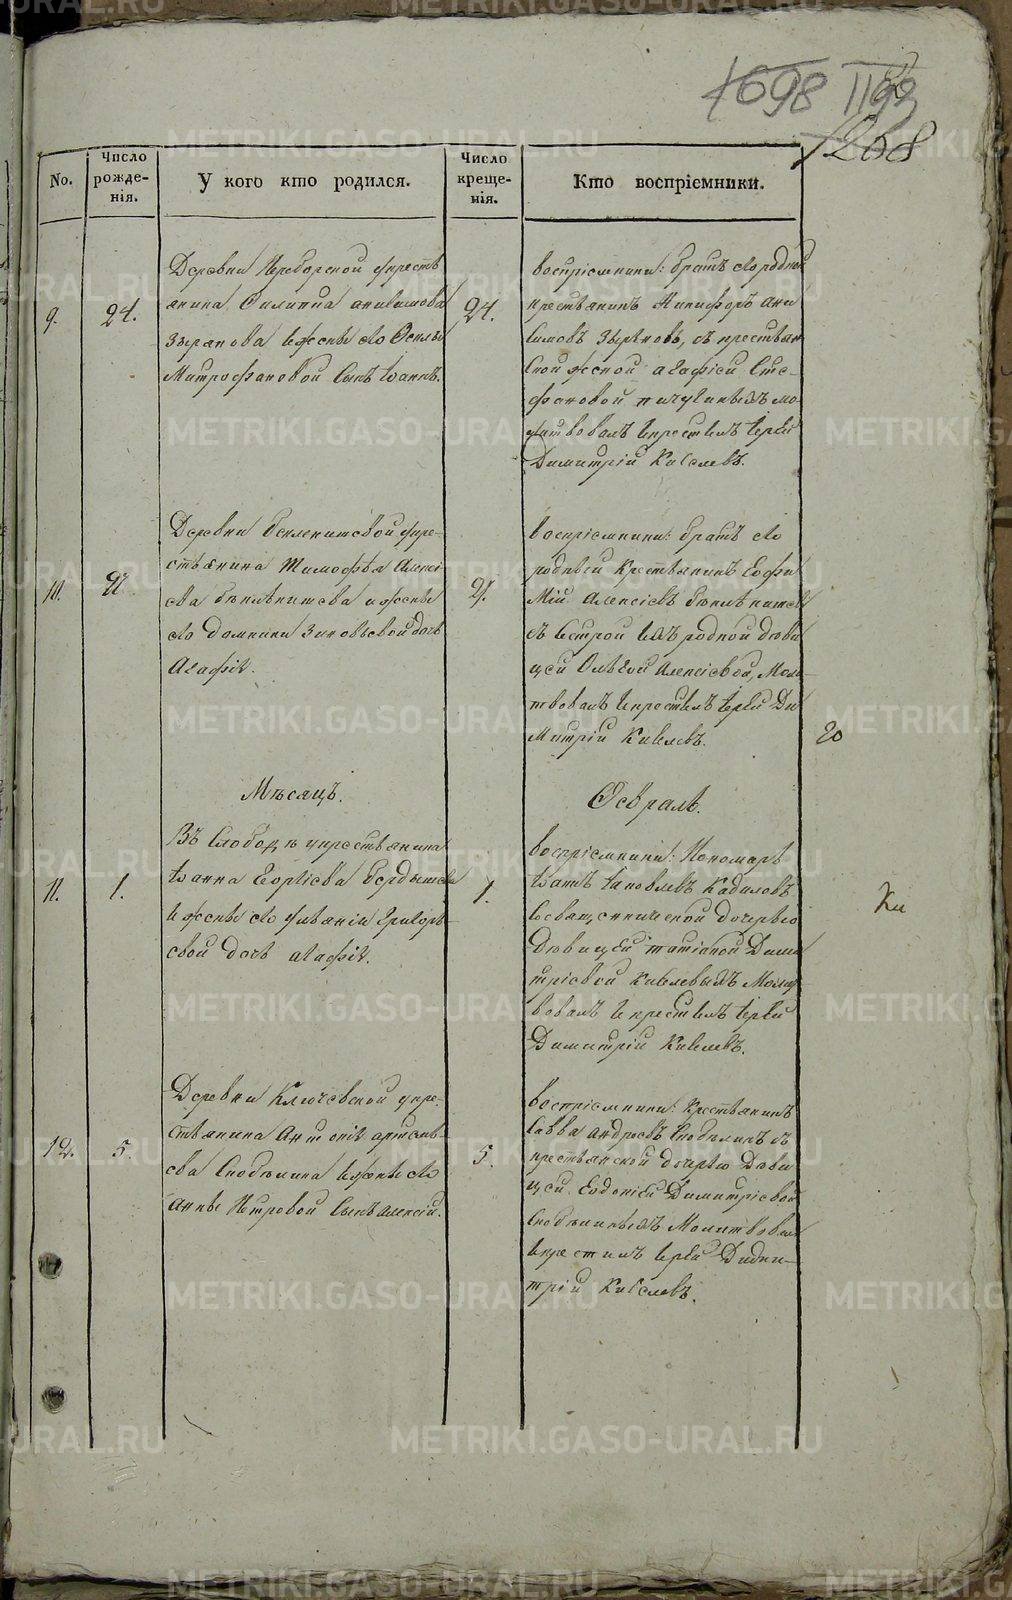 1698 1193
1268
No.
Число рожде-нія.
У кого кто родился.
Число креще-нія.
Кто воспріемники.
9.
24.
Деревни Переборской у крестъ
янина Филиппа Анисимова
Зырянова и жены его
Митрофановой сынъ Іоаннъ.
24.
воспріемники: братъ его родной
крестьянинъ Никифоръ Ани
симовъ Зыряновъ, съ крестьян
ской женой Агафіей Сте-
фановой Пичугиныхъ мо
литвовалъ и крестилъ Іерей
Димитрій Киселевъ.
10.
Деревни у кре-
стьянина Тимофѣа Алексі
ева и жены
его Домники Зиновьевой дочь
Агафія.
воспріемники: братъ его
родный крестьянинъ Евфи
мій Алексіевъ
съ сестрой ихъ родной дѣви
цей Ольгой Алексіевой, Моли
твовалъ и крестилъ Іерей Ди
митрій Киселевъ.
20
Мѣсяцъ.
Февраль.
11.
1.
Въ Слободѣ у крестьянина
Іоанна Георгіева
и жены его Григорь
евой дочь Агафія.
1.
воспріемники: Пономарь
Іоаннъ Іаковлевъ Кадиловъ
со священнической дочерью
Дѣвицей Татіаной Дими
тріевой Киселевыхъ Молит
вовалъ и крестилъ Іерей
Димитрій Киселевъ.
Ки
12.
5.
Деревни Ключевской у кре-
стьянина Антонія Артемь-
ева Скобѣлина и жены его
Анны Петровой сынъ Алексій.
5.
воспріемники: крестьянинъ
Савва Андреевъ Скобѣлинъ съ
крестьянской дочерью Дѣви
цей Евдокіей Димитріевой
Скобѣлиныхъ Молитвовалъ
и крестилъ Іерей Дими-
трій Киселевъ.
METRIKI.GASO-URAL.RU